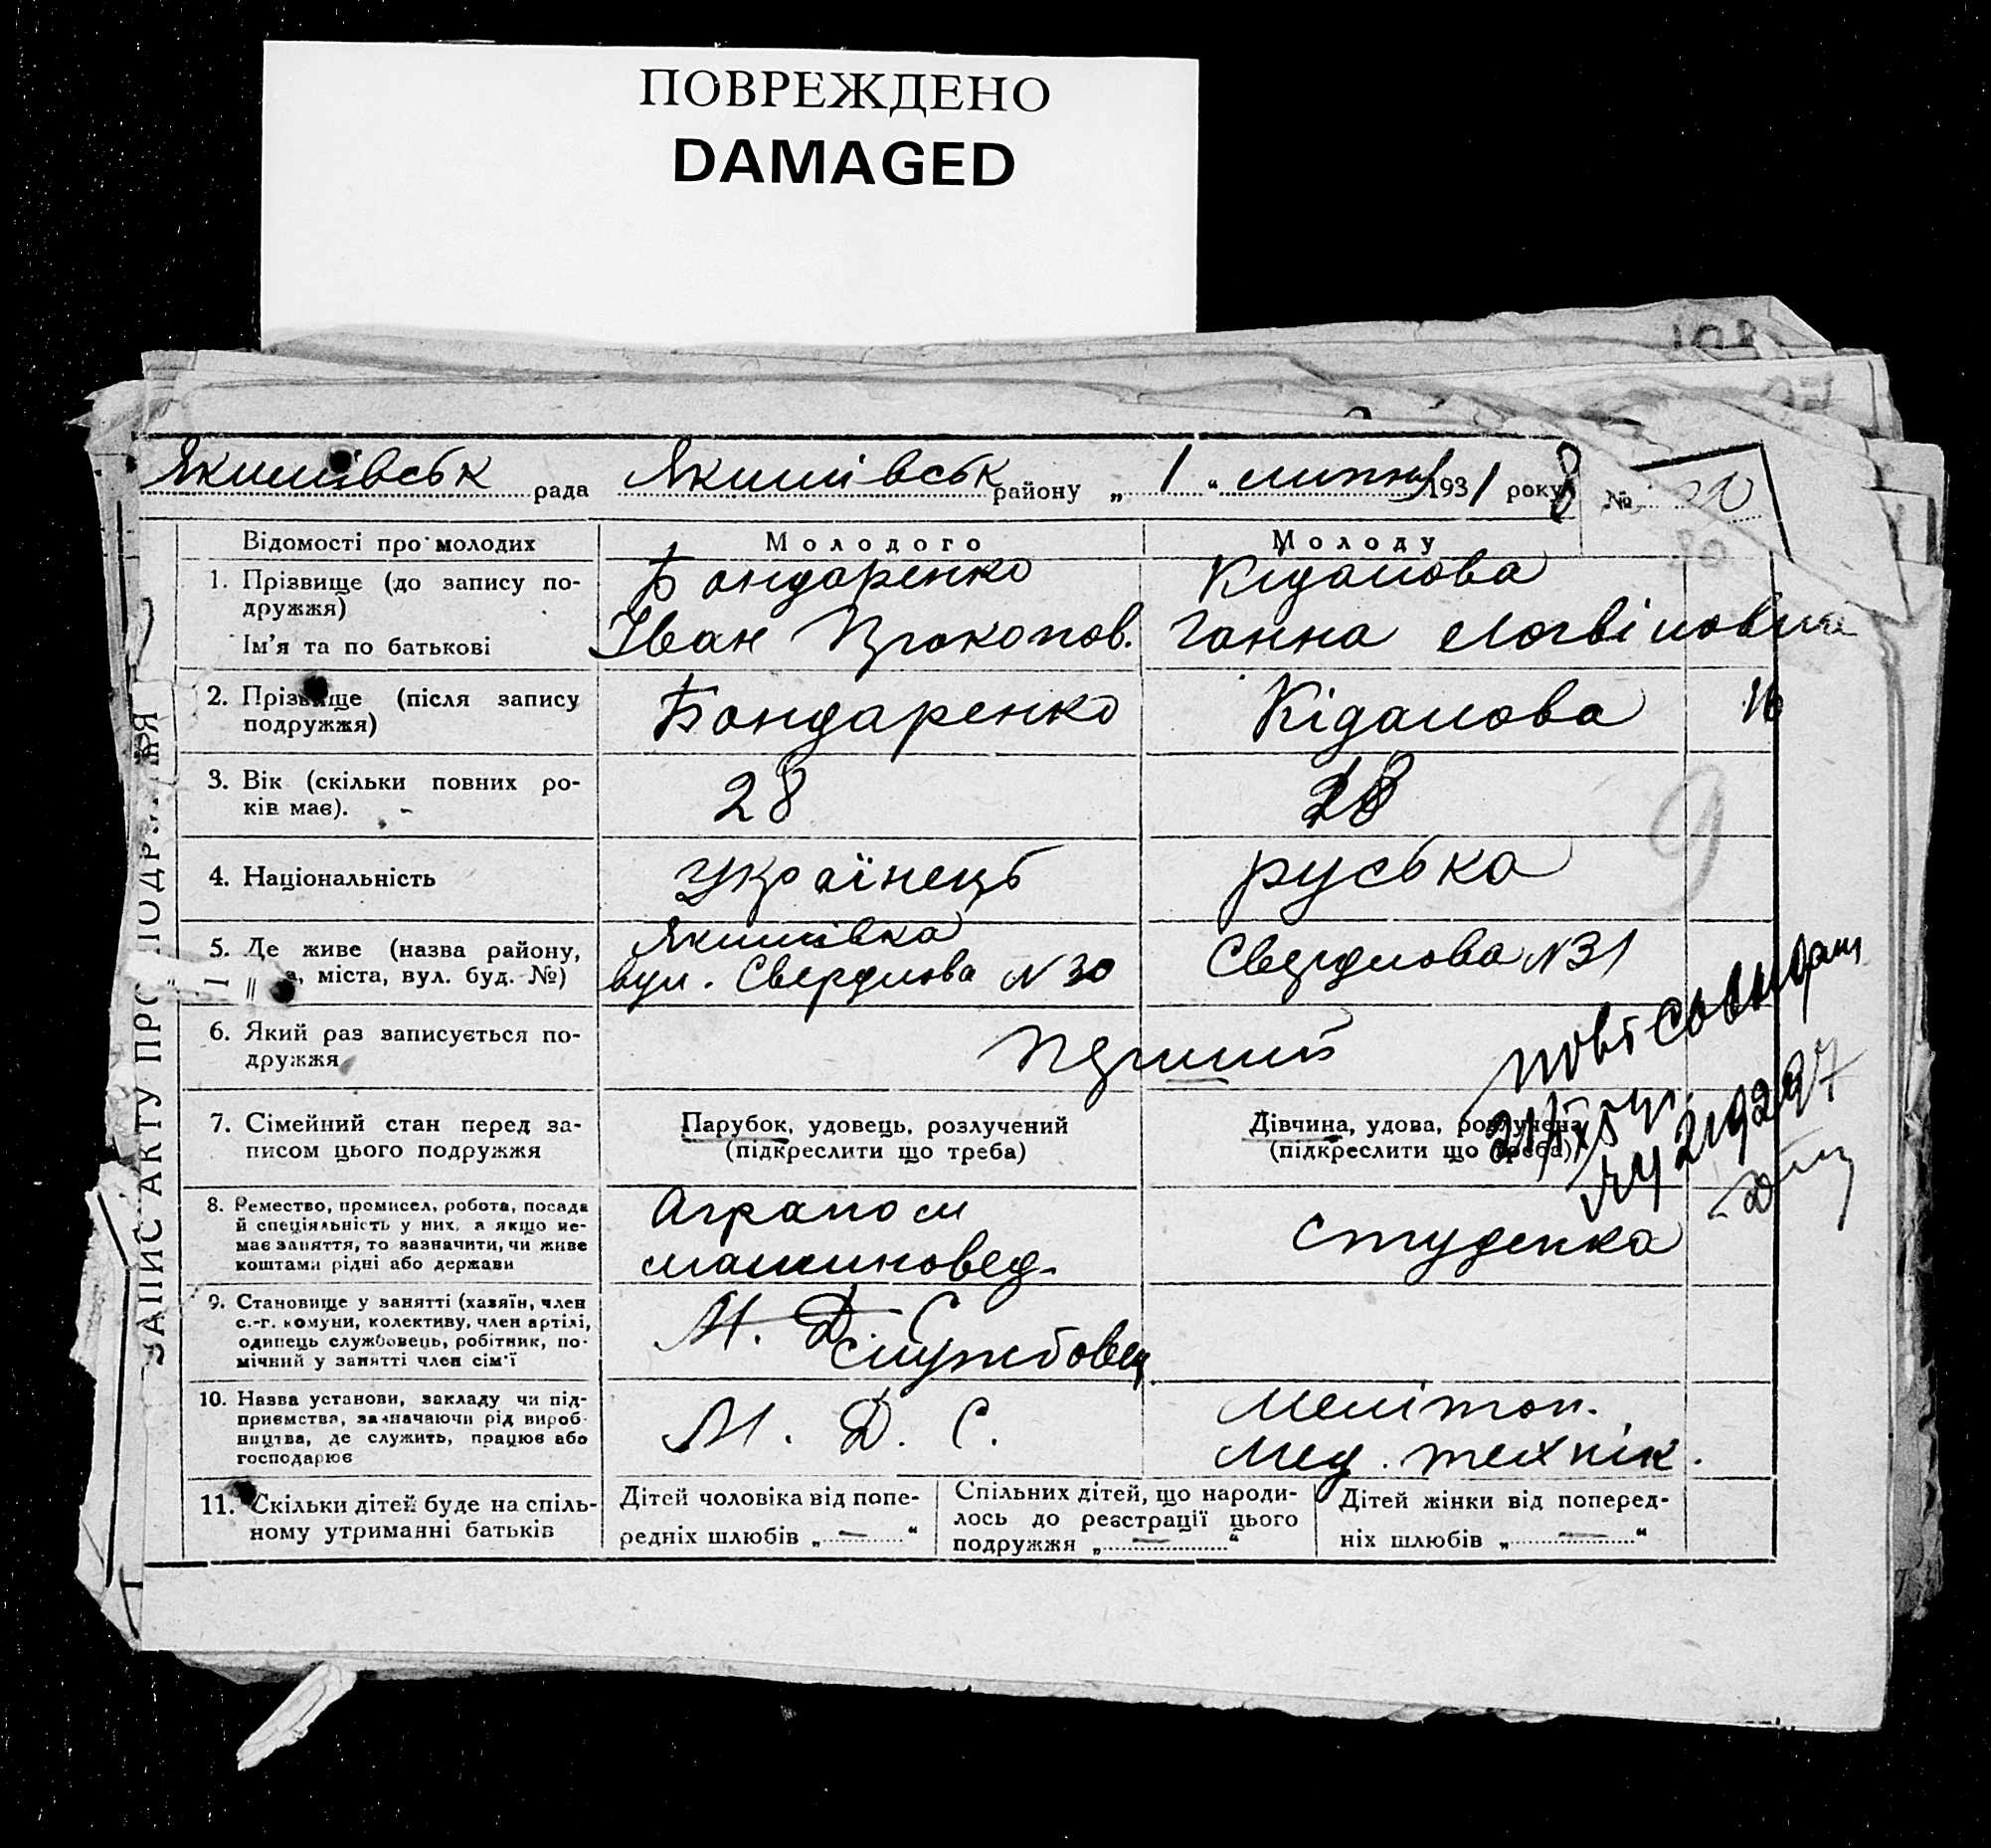 ПОВРЕЖДЕНО
DAMAGED
Якимівськ рада Якимівськ району „ 1 “ липня 1931 року №
ЗАПИС АКТУ ПРО
Відомості про молодих
Молодого
Молоду
1. Прізвище (до запису по-
дружжя)
Ім'я та по батькові
Бондаренко
Іван Прокопов.
Кідалова
Ганна Логвіновна
2. Прізвище (після запису
подружжя)
Бондаренко
Кідалова
16
3. Вік (скільки повних ро-
ків має).
28
4. Національність
Українець
руська
9
5. Де живе (назва району,
міста, вул. буд. №)
Якимівка
вул. Свердлова N 30
Свердлова N 31
6. Який раз записується по-
дружжя
Перший
7. Сімейний стан перед за-
писом цього подружжя
Парубок, удовець, розлучений
(підкреслити що треба)
Дівчина, удова, розлучена
(підкреслити що треба)
8. Ремество, промисел, робота, посада
й спеціяльність у них, а якщо не-
має заняття, то зазначити, чи живе
коштами рідні або держави
Аграном
машиновед.
студенка
9. Становище у занятті (хазяїн, член
с.-г. комуни, колективу, член артілі,
одинець службовець, робітник, по-
мічний у занятті член сім'ї
М. Д. С.
службовец
10. Назва установи, закладу чи під-
приємства, зазначаючи рід вироб-
ництва, де служить, працює або
господарює
М. Д. С.
Мелітоп.
Мед. технік.
11. Скільки дітей буде на спіль-
ному утриманні батьків
Дітей чоловіка від попе-
редніх шлюбів „ — “
Спільних дітей, що народи-
лось до реєстрації цього
подружжя „ — “
Дітей жінки від поперед-
ніх шлюбів „ — “